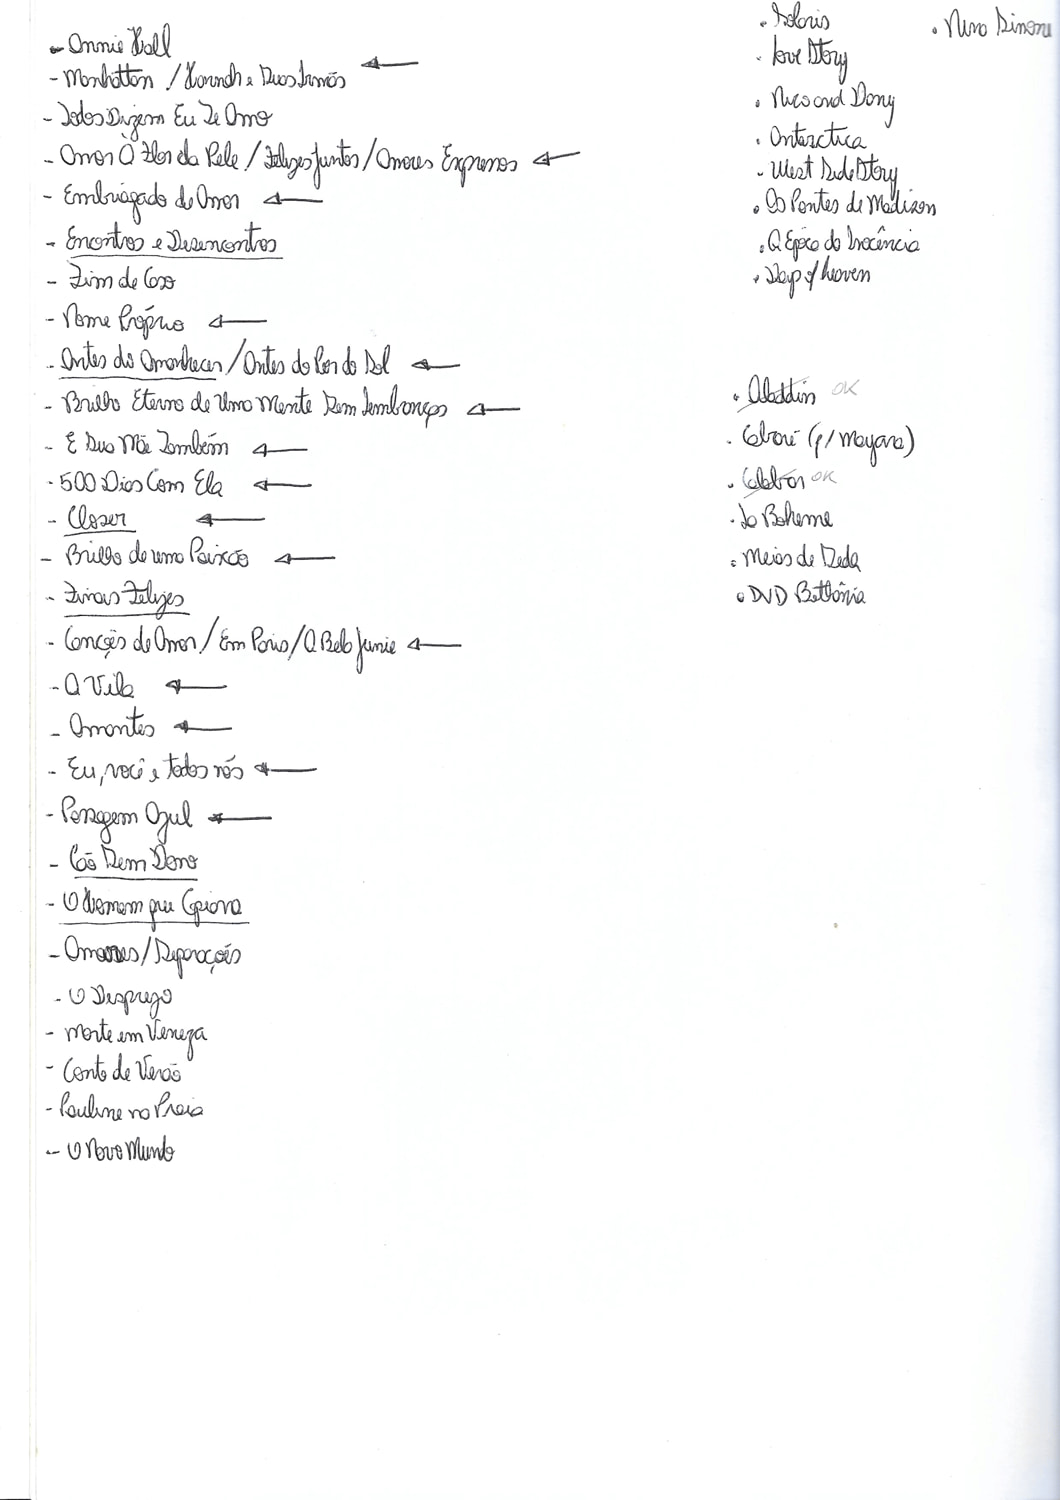 - Annie Hall
- Manhattan / Hannah e Suas Irmãs
- Todos Dizem Eu Te Amo
- Amor À Flor da Pele / Felizes Juntos / Amores Expressos
- Embriagado de Amor
- Encontros e Desencontros
- Fim de Caso
- Nome Próprio
- Antes do Amanhecer / Antes do Pôr do Sol
- Brilho Eterno de Uma Mente Sem Lembranças
- E Sua Mãe Também
- 500 Dias Com Ela
- Closer
- Brilho de uma Paixão
- Finais Felizes
- Canções de Amor / Em Paris / A Bela Junie
- A Vila
- Amantes
- Eu, você e todos nós
- Passagem Azul
- Cão Sem Dono
- O Homem que Copiava
- Amores / Separações
- O Desprezo
- Morte em Veneza
- Conto de Verão
- Pauline na Praia
- O Novo Mundo
• Solaris
• Nina Simone
• Love Story
• Antarctica
• West Side Story
• As Pontes de Madison
• A Época da Inocência
• Days of heaven
• Aladdin OK
• (p/ Mayara)
• OK
• La Boheme
• Meias de Seda
• DVD Bethânia